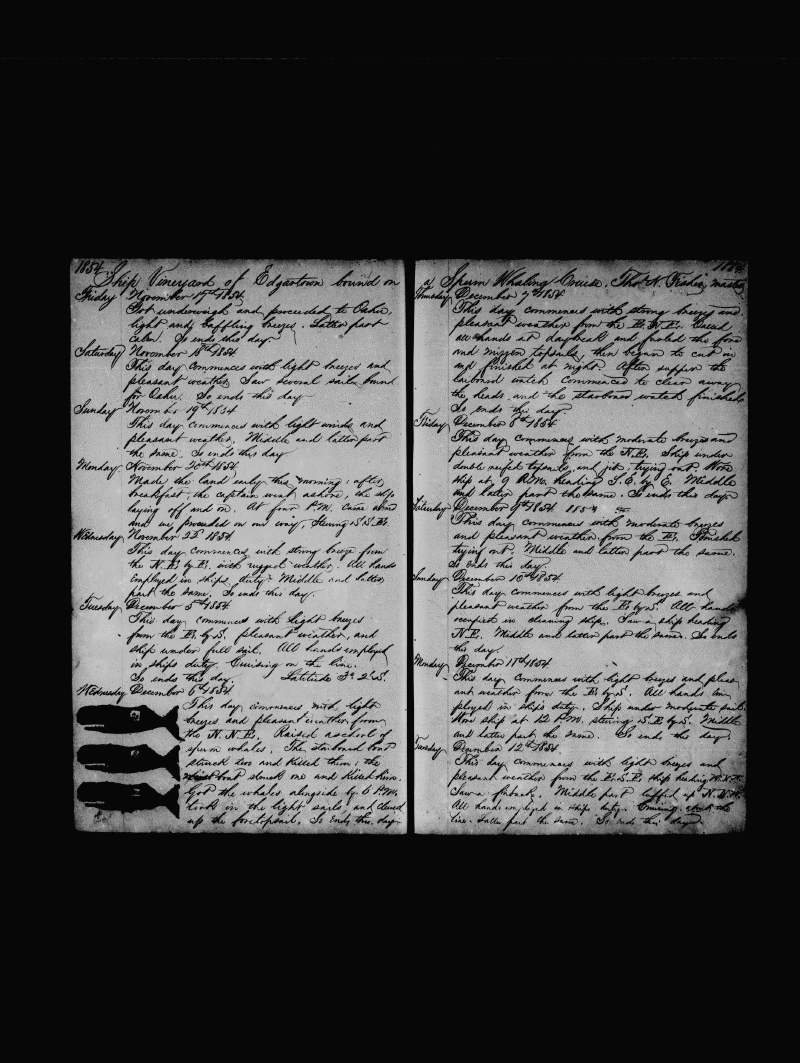 1854
Ship Vineyard of Edgartown bound on
Friday November 17th 1854
Got underweigh and proceeded to Oahu,
light and baffling breezes. Latter part
calm. So ends this day
Saturday November 18th 1854
This day commences with light breezes and
pleasant weather. Saw several sails bound
for Oahu. So ends this day
Sunday November 19th 1854
This day commences with light winds and
pleasant weather, Middle and latter part
the same. So ends this day
Monday November 20th 1854
Made the land early this morning: after
breakfast, the captain went ashore, the ship
laying off and on. At four P.M. came aboard
and we proceeded on our way, Steering S.S.E.
Wednesday November 22d 1854
This day commences with strong breeze from
the N.E. by E. with rugged weather. All hands
employed in ships duty. Middle and latter
part the same. So ends this day.
Tuesday December 5th 1854
This day commences with light breezes
from the E. by S. pleasant weather, and
ship under full sail. All hands employed
in ships duty. Cruising on the line.
So ends this day. Latitude 3° 2' S.
Wednesday December 6th 1854
This day commences with light
breezes and pleasant weather from
the N.N.E. Raised a school of
sperm whales. The starboard boat
struck two and killed them: the
waist boat struck one and killed him.
Got the whales alongside by 6 P.M.
took in the light sails, and clewed
up the foretopsail. So ends this day.
a Sperm Whaling Cruise. Thos N. Fisher, master
Thursday December 7th 1854
This day commences with strong breezes and
pleasant weather from the E.N.E. Called
all hands at daybreak and furled the fore
and mizzen topsails, then began to cut in
and finished at night. After supper the
larboard watch commenced to clear away
the heads, and the starboard watch finished
So ends this day
Friday December 8th 1854
This day commences with moderate breezes and
pleasant weather from the N.E. Ship under
double reefed topsails, and jib, trying out. Wore
ship at 9 P.M. heading S.E. by E. Middle
and latter part the same. So ends this day
Saturday December 9th 1854 1854
This day commences with moderate breezes
and pleasant weather, from the E. Finished
trying out. Middle and latter part the same.
So ends this day
Sunday December 10th 1854
This day commences with light breezes and
pleasant weather from the E. by S. All hands
occupied in cleaning ship. Saw a ship heading
N.E. Middle and latter part the same. So ends
this day.
Monday December 11th 1854
This day commences with light breezes and pleas
ant weather from the E. by S. All hands em
ployed in ships duty. Ship under moderate sail.
Wore ship at 12 P.M. steering S.E. by S. Middle
and latter part the same. So ends this day.
Tuesday December 12th 1854
This day commences with light breezes and
pleasant weather from the E.S.E. ship heading
Saw a finback. Middle part luffed up N.E.
All hands employed in ships duty. Cruising about the
line. Latter part the same. So ends this day.